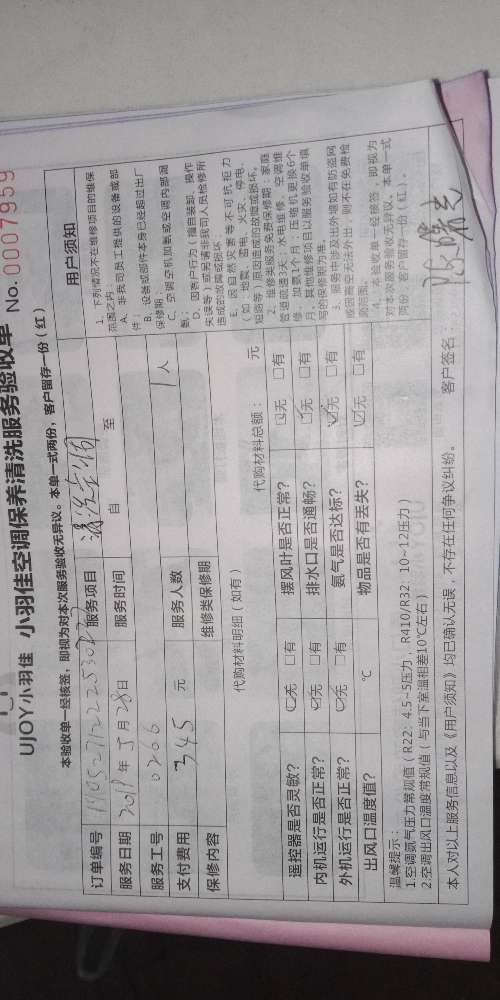 UJOY小羽佳 小羽佳空调保养清洗服务验收单 No.0007959
本验收单一经核签，即视为对本次服务验收无异议。本单一式两份，客户留存一份（红）
订单编号 服务项目 清洗空调
服务日期 2019年5月28日 服务时间 自 至
服务工号 0266
支付费用 345 元 服务人数 1人
保修内容 维修类保修期
代购材料明细（如有） 代购材料总额： 元
遥控器是否灵敏？ ☑无 □有 摆风叶是否正常？ ☑无 □有
内机运行是否正常？ ☑无 □有 排水口是否通畅？ ☑无 □有
外机运行是否正常？ ☑无 □有 氨气是否达标？ ☑无 □有
出风口温度值？ ℃ 物品是否有丢失？ ☑无 □有
用户须知
1、下列情况不在维修项目的维保
范围之内
A、非我司员工提供的设备或部
件；
B、设备或部件本身已经超过出厂
保修期
C、空调空机加氨或空调内部漏
氨；
D、因客户行为（擅自装卸、操作
失误等）或另请非我司人员检修所
造成的故障或损坏
E、因自然灾害等不可抗拒力
（如：地震、雷电、火灾、停电、
短路等）原因造成的故障或损坏。
2、维修类服务免费保修期：家庭
管道疏通3天；水电维修、空调维
修、加氨1个月；压缩机更换6个
月；其他维修项目以服务验收单填
写的保修期为准。
3、服务中涉及出外墙如有防盗网
或因高空无法外出，则不在免费检
测范围。
4、本验收单一经核签，即视为
对本次服务验收无异议。本单一式
两份，客户留存一份（红）。
温馨提示：
1.空调氨气压力常规值（R22：4.5~5压力，R410/R32：10~12压力）
2.空调出风口温度常规值（与当下室温相差10℃左右）
本人对以上服务信息以及《用户须知》均已确认无误，不存在任何争议纠纷。 客户签名：